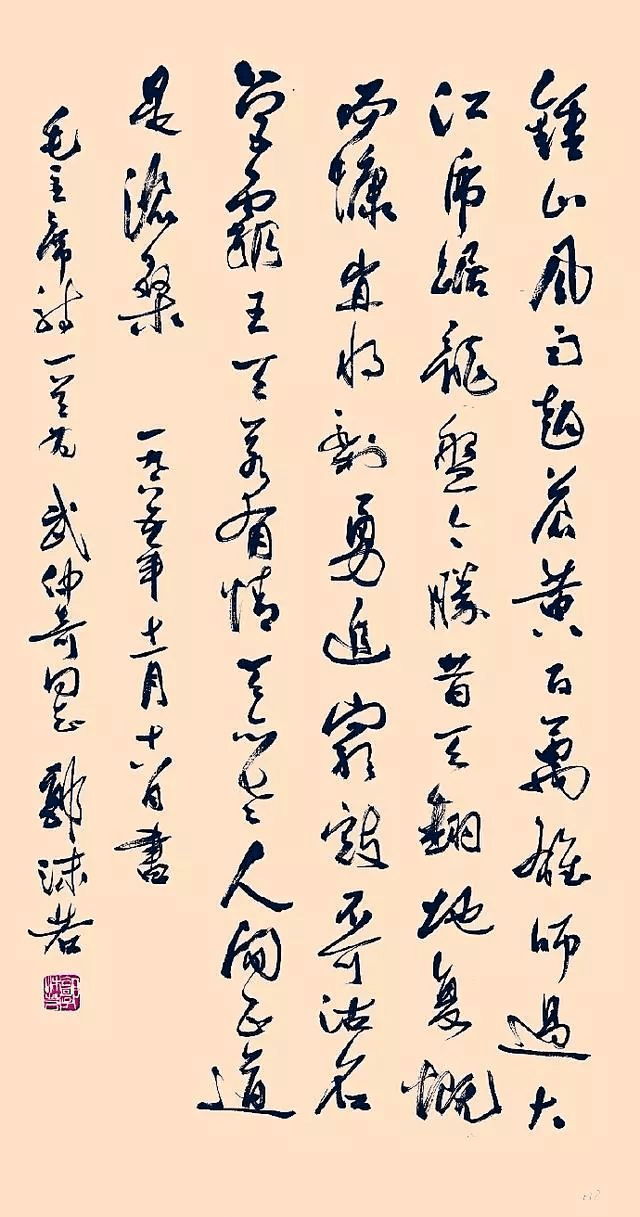 鍾山風雨起蒼黃百萬雄師過大
江虎踞龍盤今勝昔天翻地复慨
而慷宜将剩勇追窮寇不可沽名
學霸王天若有情天亦老人间正道
是滄桑 一九六五年十一月十八日書
毛主席詩一首为 武仲奇同志 郭沫若